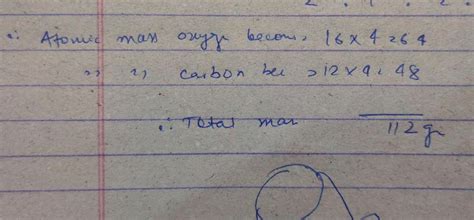 ∴ Atomic mass oxyge becom = 16 x 4 = 64
" " carbon bec = 12 x 4 = 48
∴ Total mas 112 g